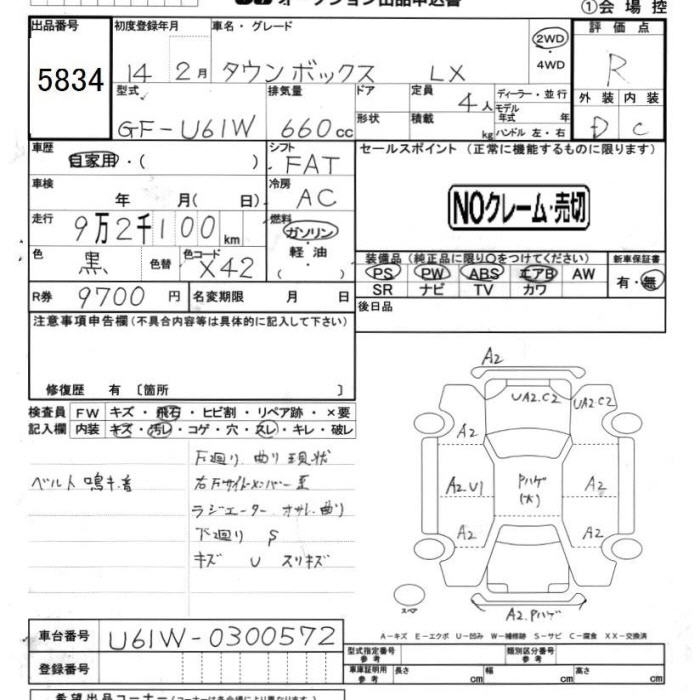 ①会場控
出品番号 初度登録年月 車名・グレード 評価点
5834 14 2月 タウンボックス LX 2WD R
4WD
型式 排気量 ドア 定員 4人 ディーラー・並行 モデル年式 年 外装 内装
GF-U61W 660cc 形状 積載 kg ハンドル 左・右 D C
車歴 自家用・( ) シフト FAT セールスポイント (正常に機能するものに限ります)
車検 年 月( 日) 冷房 AC
NOクレーム・売切
走行 9万2千100km 燃料 ガソリン
軽・油
色 黒 色替 色コード X42 装備品(純正品に限り○をつけてください) 新車保証書
PS PW ABS エアB AW 有・無
SR ナビ TV カワ
R券 9700円 名変期限 月 日 後日品
注意事項申告欄(不具合内容等は具体的に記入して下さい)
修復歴 有 〔箇所 〕
検査員 FW キズ・飛石・ヒビ割・リペア跡・×要
記入欄 内装 キズ・汚レ・コゲ・穴・スレ・キレ・破レ
下廻り 曲り現状
ベルト鳴キ音
右Fサイドメンバー歪
ラジエーター オサレ曲り
下廻り S
キズ U スリキズ
A2
UA2.C2 UA2.C2
A2
A2.U1 Pハゲ(大) A2
A2 A2
スペア
A2.Pハゲ
A-キズ E-エクボ U-凹み W-補修跡 S-サビ C-腐食 XX-交換済
車台番号 U61W-0300572
型式指定番号 参考 類別区分番号 参考
登録番号 車庫証明用 参考 長さ cm 幅 cm 高さ cm